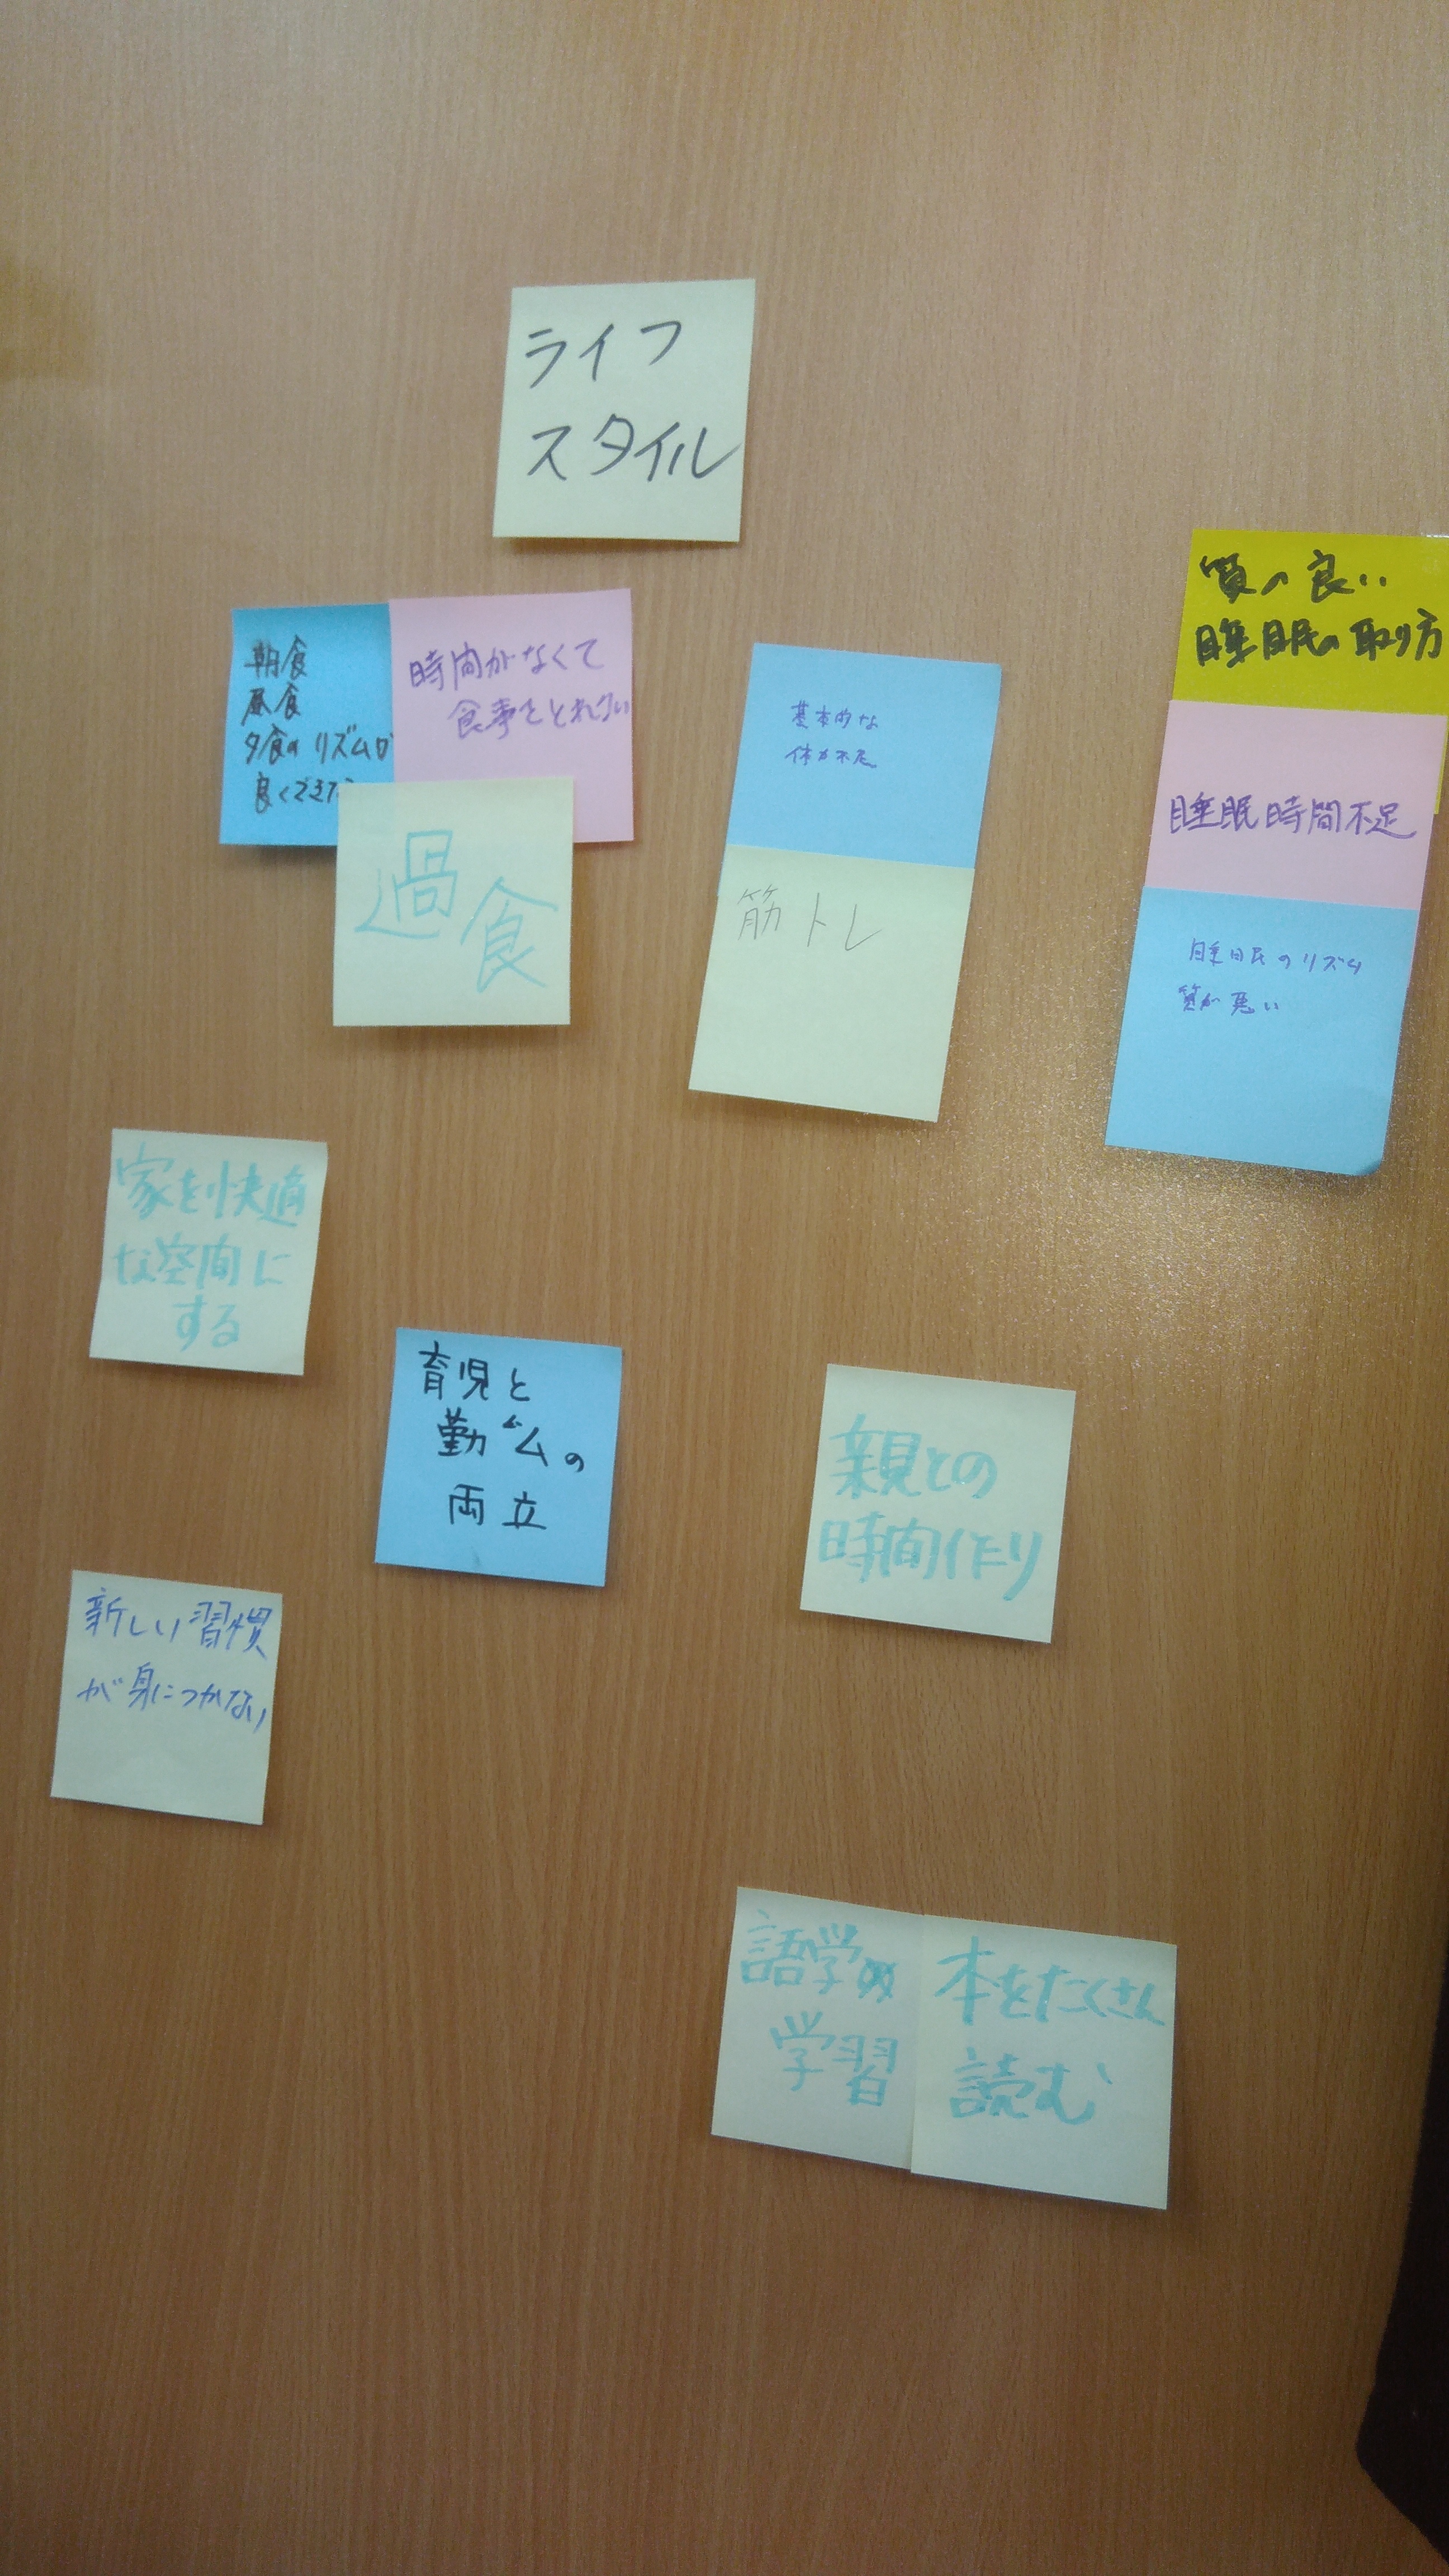 ライフ
スタイル
朝食
昼食
夕食のリズムが
良くできな
時間がなくて
食事をとれない
過食
基本的な
体力不足
筋トレ
質の良い
睡眠の取り方
睡眠時間不足
睡眠のリズム
質が悪い
家を快適
な空間に
する
育児と
勤ムの
両立
親との
時間作り
新しい習慣
が身につかない
語学
学習
本をたくさん
読む